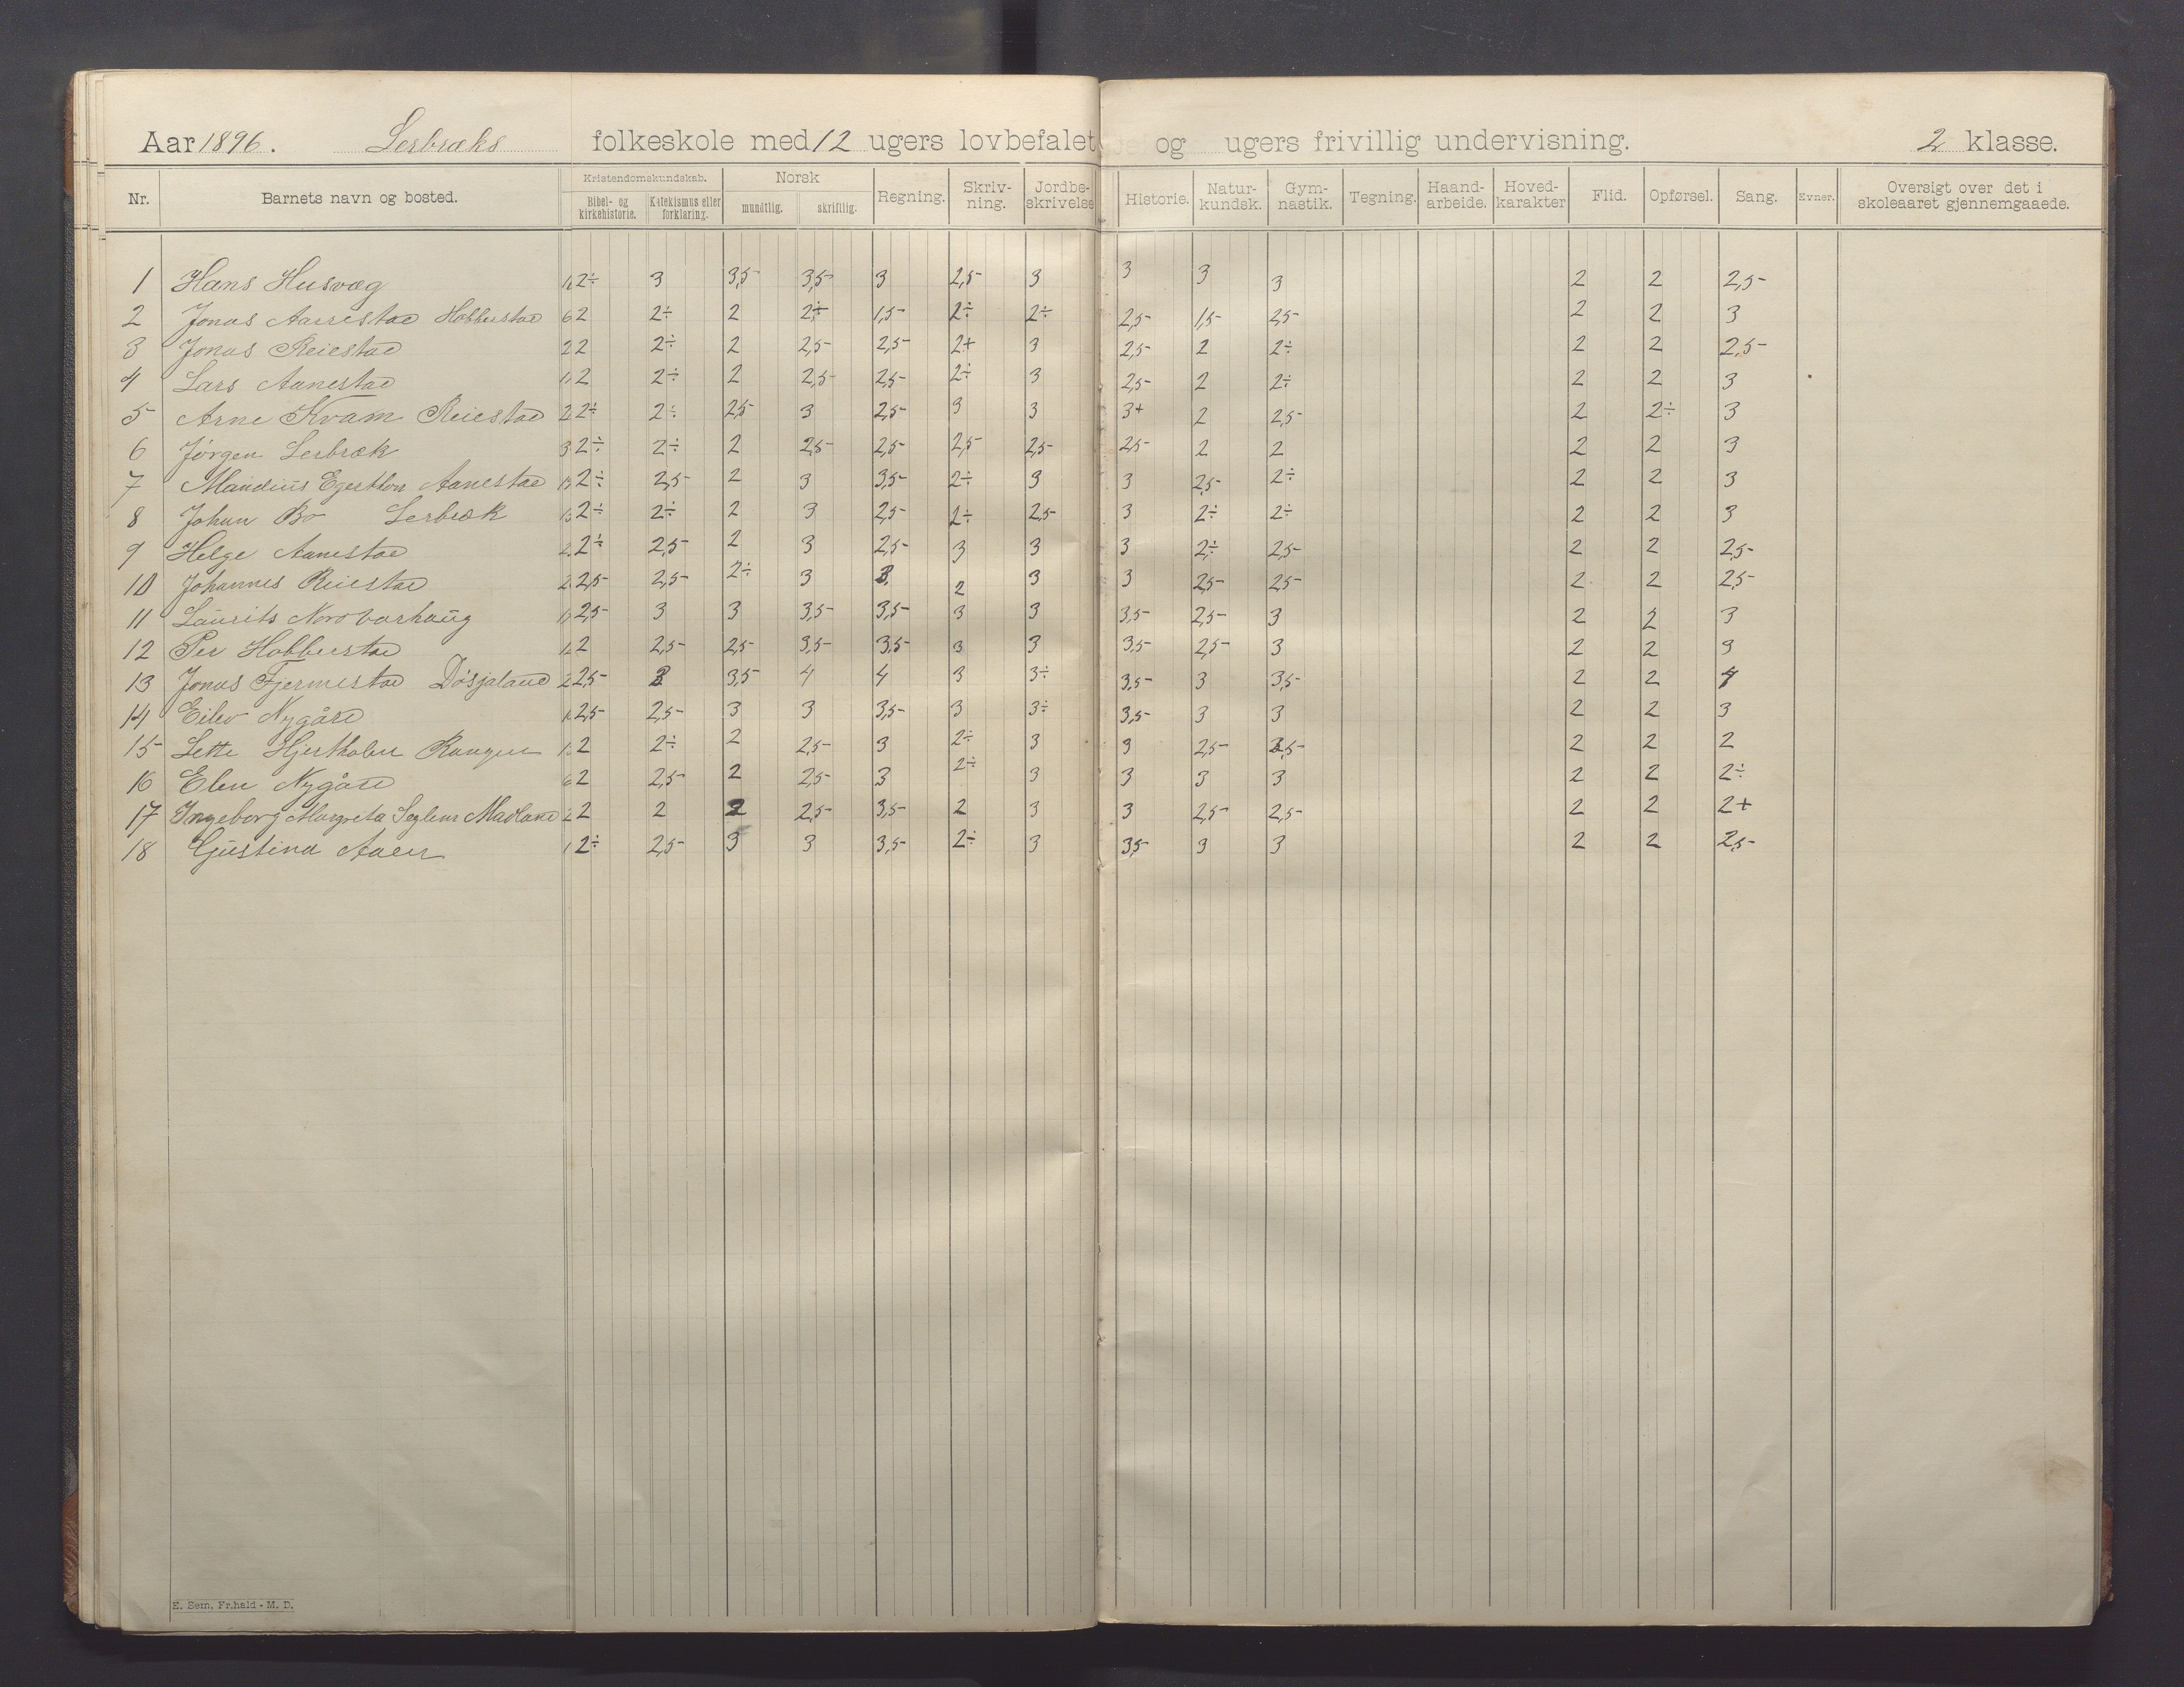 Aar 1896. Lerbræks folkeskole med 12 ugers lovbefalet og ugers frivillig undervisning. 2 klasse.
Nr. Barnets navn og bosted. Kristendomskundskab. Bibel- og kirkehistorie. Katekismus eller forklaring. Norsk mundtlig. skriftlig. Regning. Skriv-ning. Jordbe-skrivelse Historie. Natur-kundsk. Gym-nastik. Tegning. Haand-arbeide. Hoved-karakter Flid. Opførsel. Sang. Evner. Oversigt over det i skoleaaret gjennemgaaede.
1 Hans Husvæg 2÷ 3 3,5 3,5 3 2,5 3 3 3 3 2 2 2,5
2 Jonas Aarrestad Hobberstad 2 2÷ 2 2÷ 1,5 2÷ 2÷ 2,5 1,5 2,5 2 2 3
3 Jonas Reiestad 2 2÷ 2 2,5 2,5 2+ 3 2,5 2 2÷ 2 2 2,5
4 Lars Aanestad 2 2÷ 2 2,5 2,5 2÷ 3 2,5 2 2÷ 2 2 3
5 Arne Kvam Reiestad 2÷ 2÷ 2,5 3 2,5 3 3 3+ 2 2,5 2 2÷ 3
6 Jørgen Lerbræk 2÷ 2÷ 2 2,5 2,5 2,5 2,5 2,5 2 2 2 2 3
7 Maudius Egertton Aanestad 2÷ 2,5 2 3 3,5 2÷ 3 3 2,5 2÷ 2 2 3
8 Johan Bø Lerbræk 2÷ 2÷ 2 3 2,5 2÷ 2,5 3 2÷ 2÷ 2 2 3
9 Helge Aanestad 2÷ 2,5 2 3 2,5 3 3 3 2÷ 2,5 2 2 2,5
10 Johannes Reiestad 2,5 2,5 2÷ 3 3 2 3 3 2,5 2,5 2 2 2,5
11 Laurits Nordvarhaug 2,5 3 3 3,5 3,5 3 3 3,5 2,5 3 2 2 3
12 Per Hobberstad 2 2,5 2,5 3,5 3,5 3 3 3,5 2,5 3 2 2 3
13 Jonas Fjermestad Døsjaland 2,5 3 3,5 4 4 3 3÷ 3,5 3 3,5 2 2 4
14 Eilev Nygård 2,5 2,5 3 3 3,5 3 3÷ 3,5 3 3 2 2 3
15 Lette Hjertholm 2 2÷ 2 2,5 3 2÷ 3 3 2,5 2,5 2 2 2
16 Elen Nygård 2 2,5 2 2,5 3 2÷ 3 3 3 3 2 2 2÷
17 Ingeborg Margreta Seglem Madland 2 2 2 2,5 3,5 2 3 3 2,5 2,5 2 2 2+
18 Gustina Aaen 2÷ 2,5 3 3 3,5 2÷ 3 3,5 3 3 2 2 2,5
E. Sem, Fr.hald - M. D.